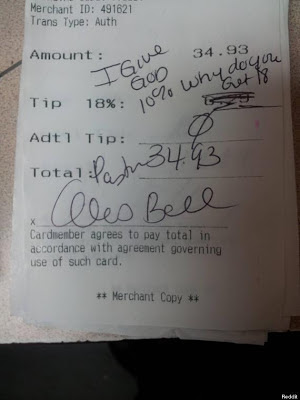 Merchant ID: 491621
Trans Type: Auth
Amount: 34.93
I Give
God
10% Why do you
Get 18
Tip 18%:
Adtl Tip: 0
Total: Pastor 34.93
x Alois Bell
Cardmember agrees to pay total in
accordance with agreement governing
use of such card.
** Merchant Copy **
Reddit